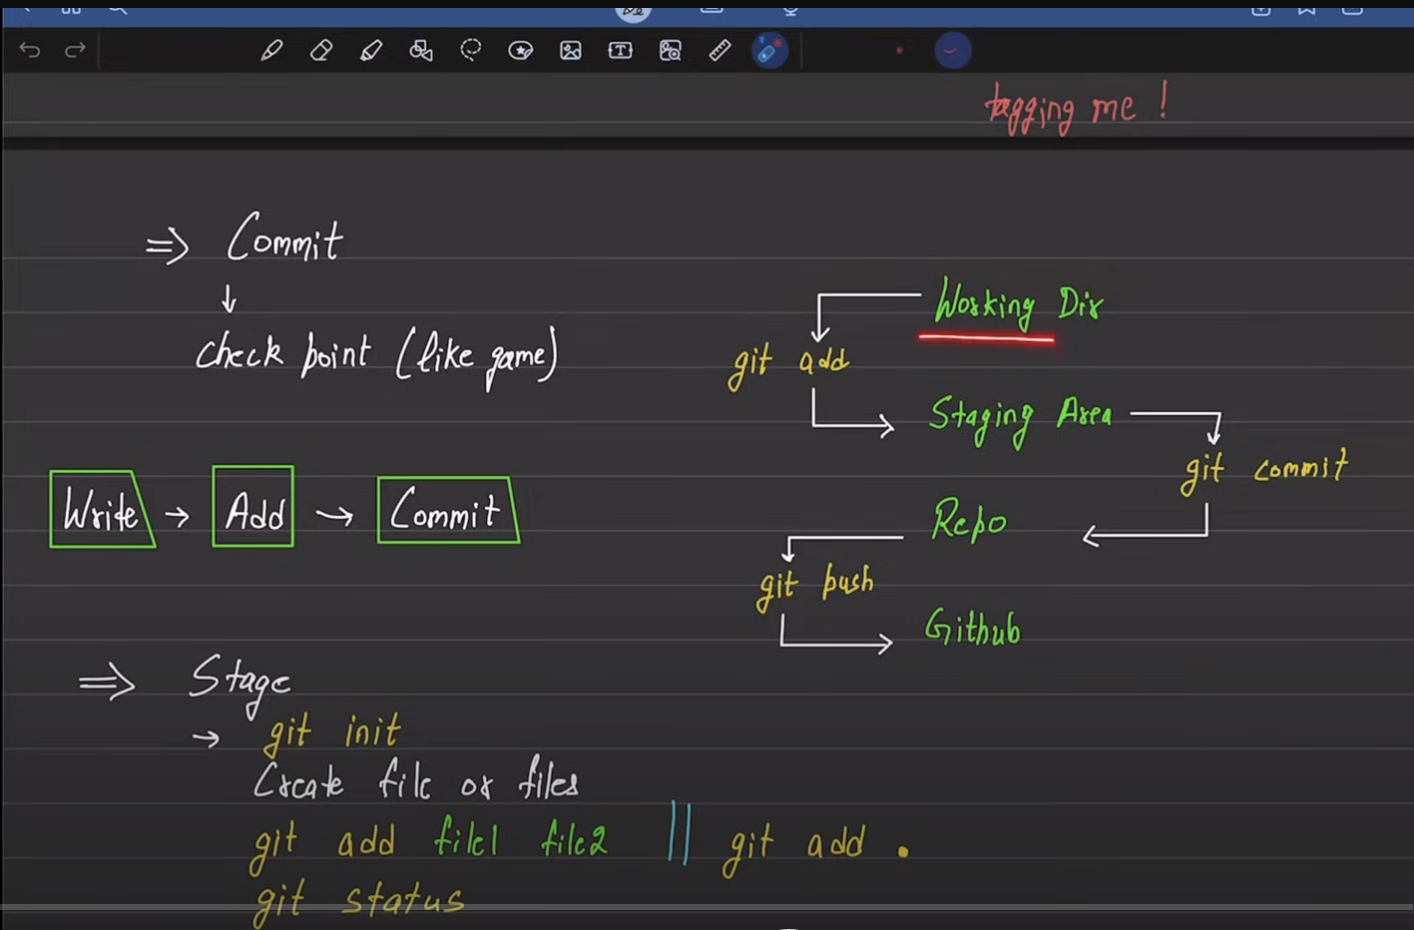 tagging me !
⇒ Commit
↓
check point (like game)
Write → Add → Commit
Working Dir
git add
Staging Area
git commit
Repo
git push
Github
⇒ Stage
→ git init
Create file or files
git add file1 file2 || git add .
git status